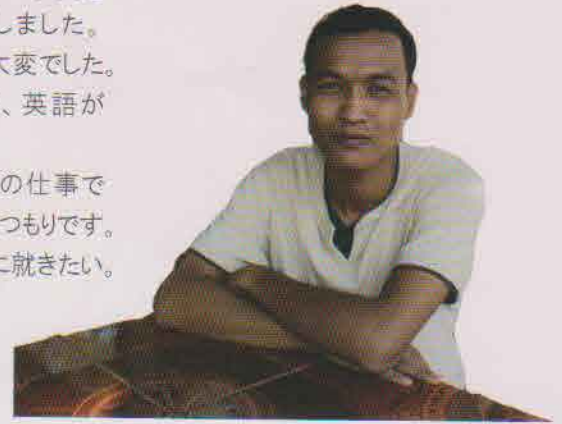 しました。
大変でした。
、英語が
の仕事で
つもりです。
に就きたい。